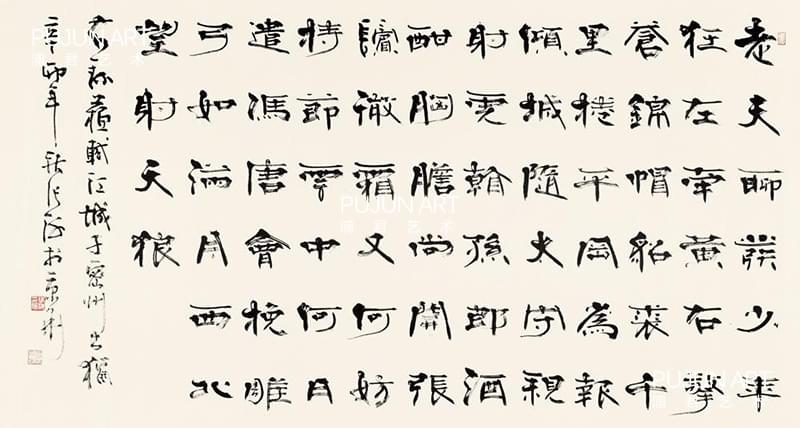 老夫聊發少年
狂左牽黃右擎
蒼錦帽貂裘千
里捲平岡為報
傾城隨太守親
射虎看孫郎酒
酣胸膽尚開張
鬢微霜又何妨
持節雲中何日
遣馮唐會挽雕
弓如滿月西北
望射天狼
蘇軾江城子密州出獵
辛卯年秋於京
PUJUN ART
PUJUN ART
PUJUN ART